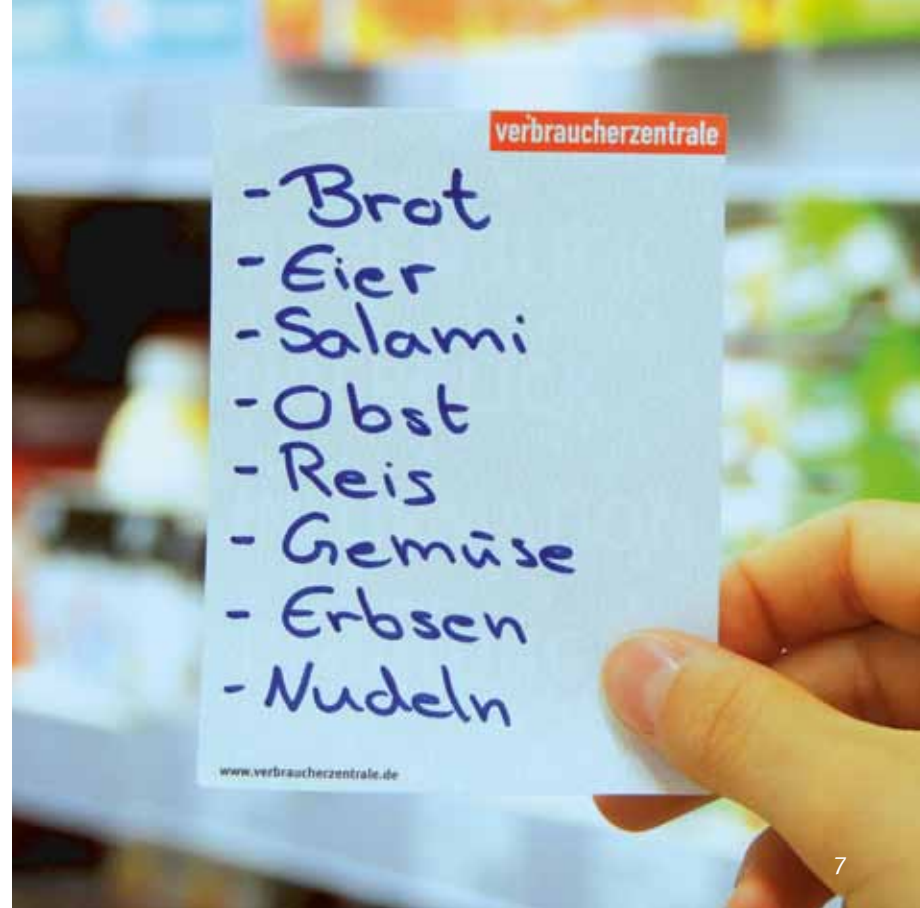 verbraucherzentrale
- Brot
- Eier
- Salami
- Obst
- Reis
- Gemüse
- Erbsen
- Nudeln
www.verbraucherzentrale.de
7